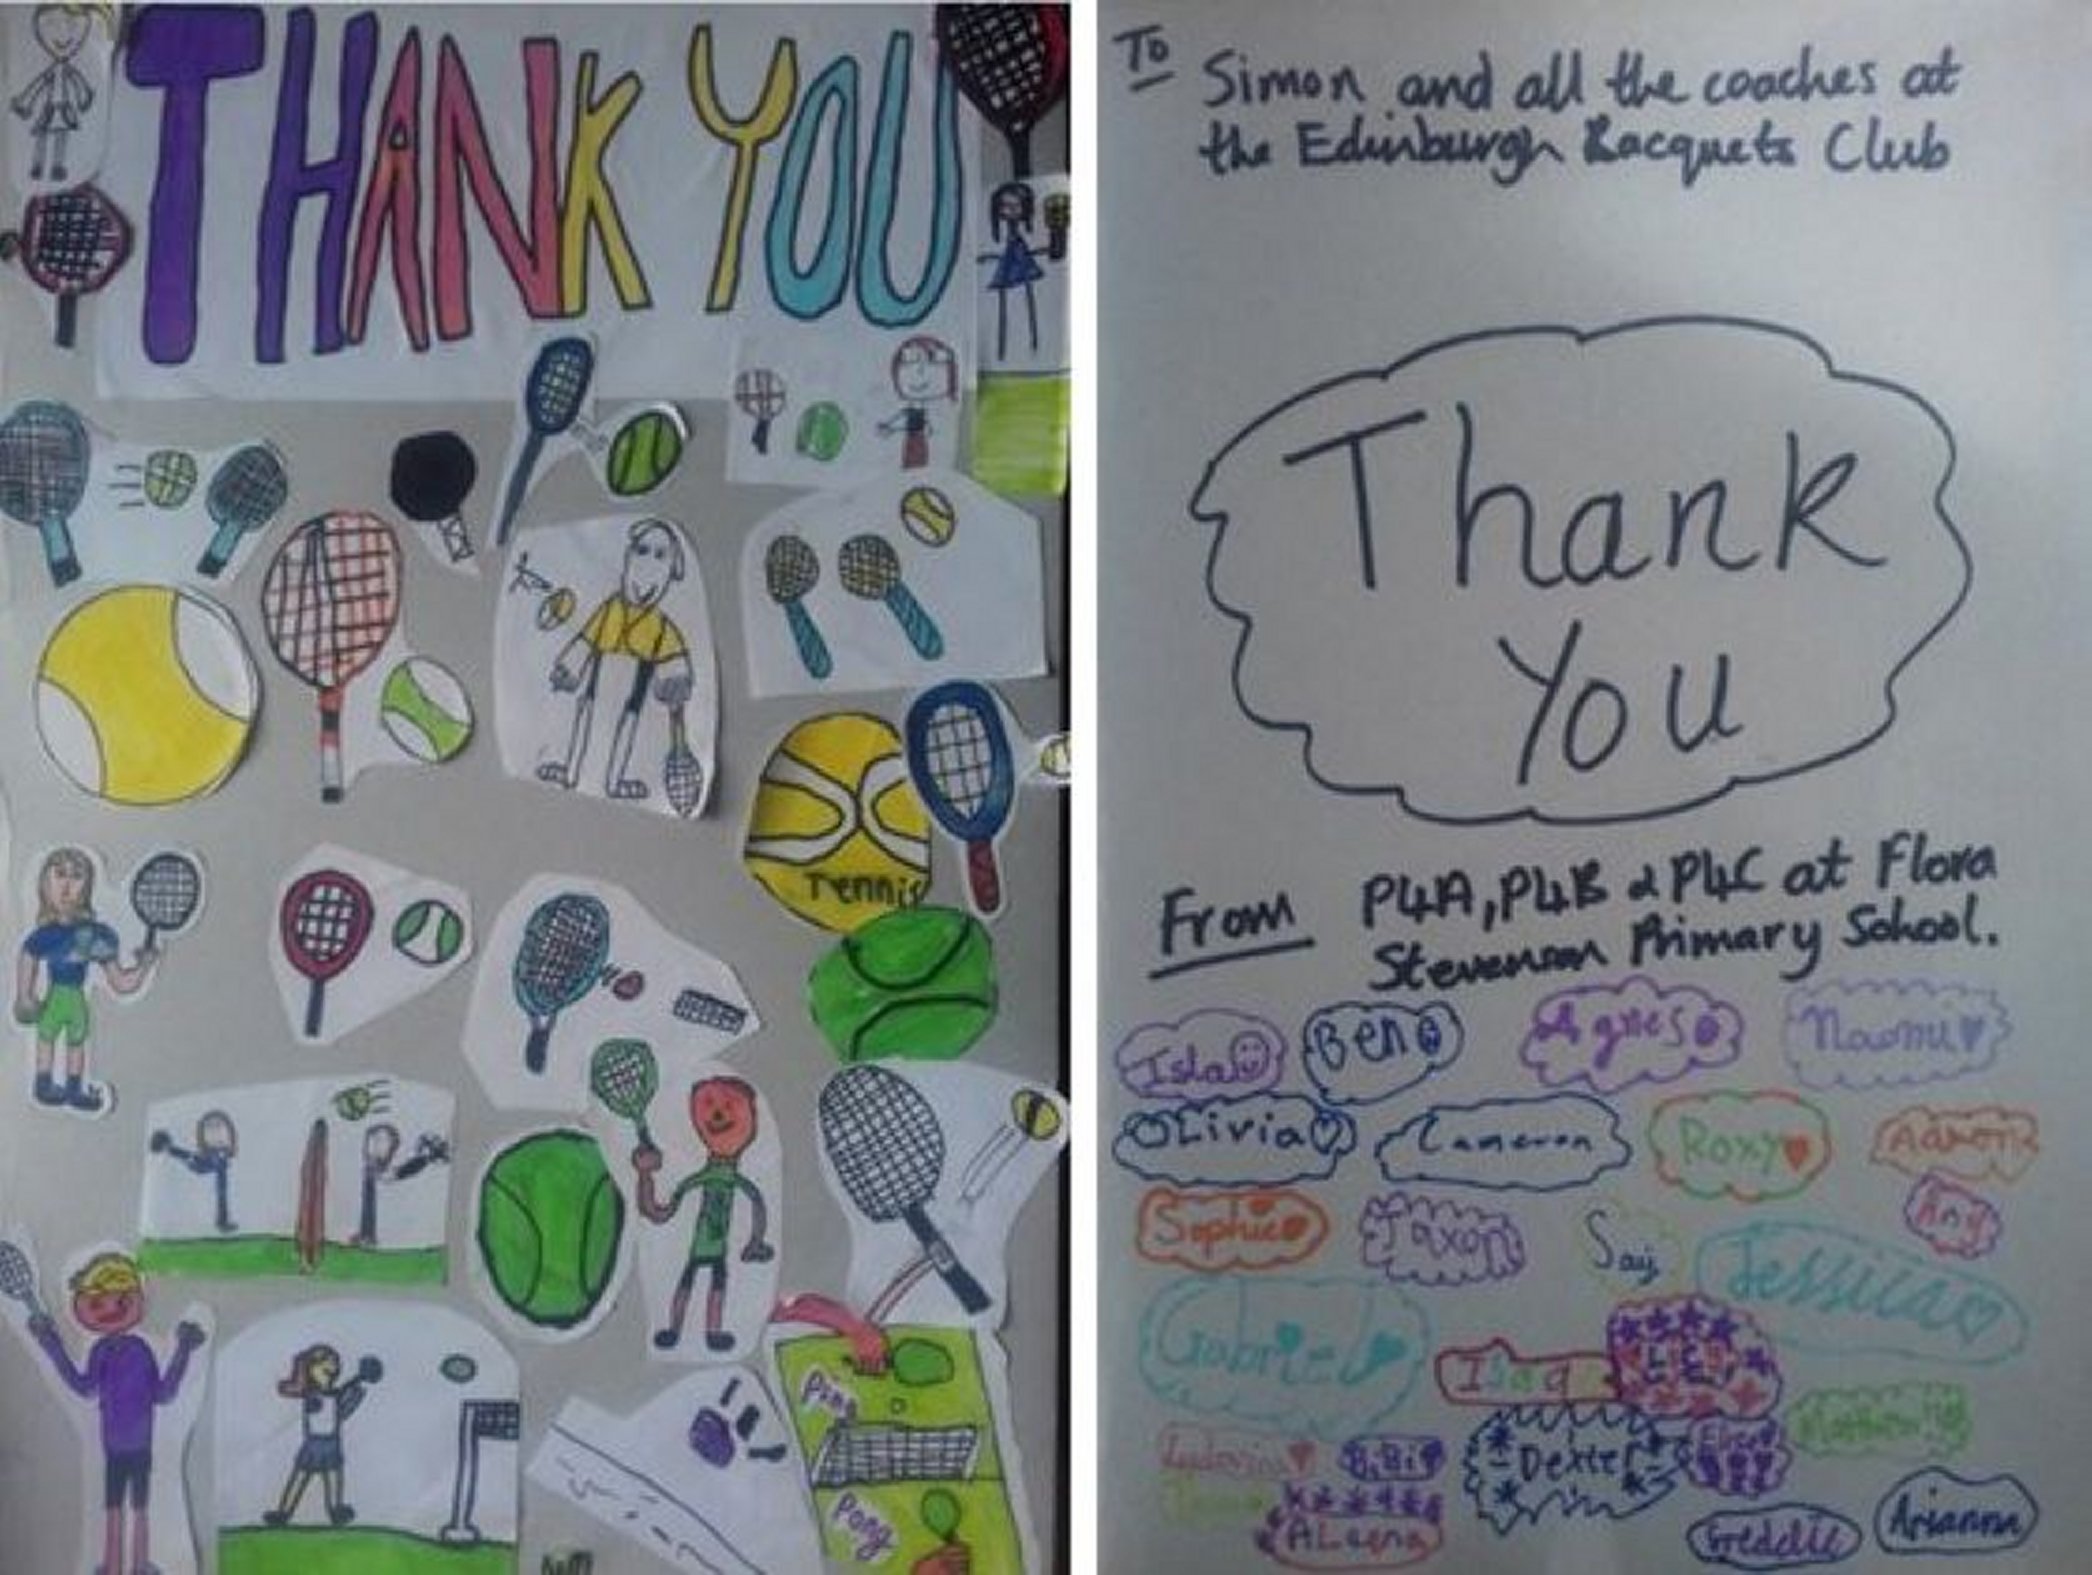 THANK YOU
Tennis
Ping
Pong
To Simon and all the coaches at
the Edinburgh Racquets Club
Thank
You
From P4A, P4B & P4C at Flora
Stevenson Primary School.
Isla Ben Agnes Naomi
Olivia Cameron Roxy Aaron
Sophie Jaxon Saij Any
Jessica
Gabriel
Isaq
Ludovica B,Bi Dexter
ALeena Freddie Arianna